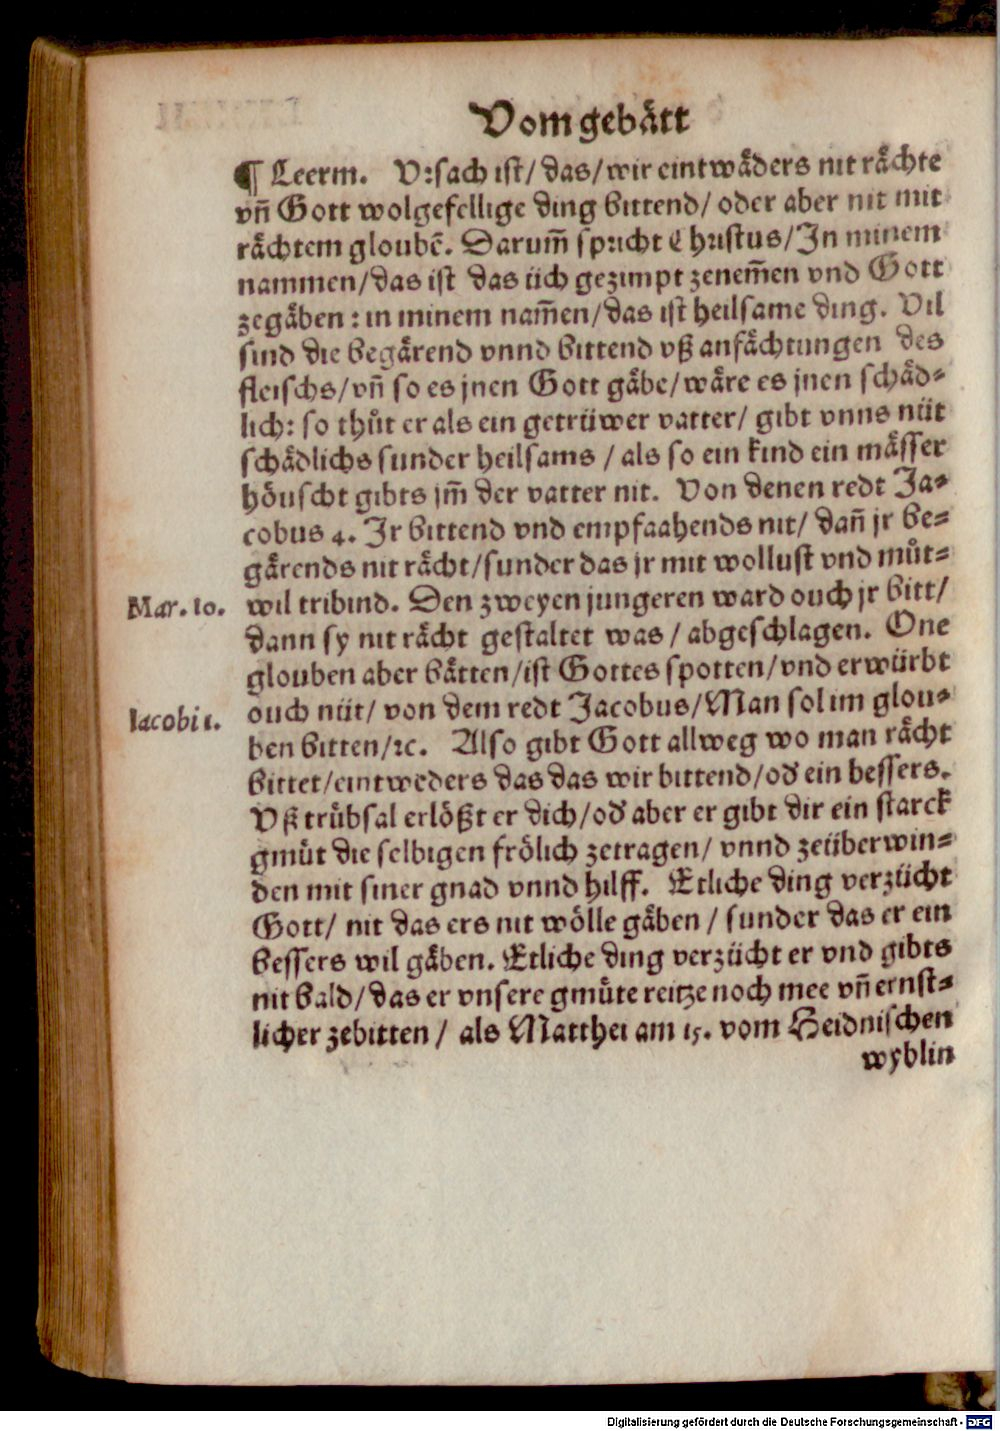 Vom gebätt
¶ Leerm. Vrsach ist/ das/ wir eintwäders nit rächte
vñ Gott wolgefellige ding bittend/ oder aber nit mit
rächtem gloubẽ. Darum̃ spricht Christus/ In minem
nammen/ das ist das üch gezimpt zenem̃en vnd Gott
zegäben: in minem nam̃en/ das ist heilsame ding. Vil
sind die begärend vnnd bittend vß anfächtungen des
fleischs/ vñ so es jnen Gott gäbe/ wäre es jnen schäd⸗
lich: so thůt er als ein getrüwer vatter/ gibt vnns nüt
schädlichs sunder heilsams / als so ein kind ein mässer
höuscht gibts jm̃ der vatter nit. Von denen redt Ja⸗
cobus 4. Ir bittend vnd empfaahends nit/ dañ jr be⸗
gärends nit rächt/ sunder das jr mit wollust vnd můt⸗
Mar. 10. wil tribind. Den zweyen jungeren ward ouch jr bitt/
dann sy nit rächt gestaltet was / abgeschlagen. One
glouben aber bätten/ ist Gottes spotten/ vnd erwürbt
Iacobi 1. ouch nüt/ von dem redt Jacobus/ Man sol im glou⸗
ben bitten/ ꝛc. Also gibt Gott allweg wo man rächt
bittet/ eintweders das das wir bittend/ od̓ ein bessers.
Vß trübsal erlößt er dich/ od̓ aber er gibt dir ein starck
gmüt die selbigen frölich zetragen/ vnnd zeüberwin⸗
den mit siner gnad vnnd hilff. Etliche ding verzücht
Gott/ nit das ers nit wölle gäben / sunder das er ein
bessers wil gäben. Etliche ding verzücht er vnd gibts
nit bald/ das er vnsere gmüte reitze noch mee vñ ernst⸗
licher zebitten / als Matthei am 15. vom Heidnischen
wyblin
Digitalisierung gefördert durch die Deutsche Forschungsgemeinschaft - DFG